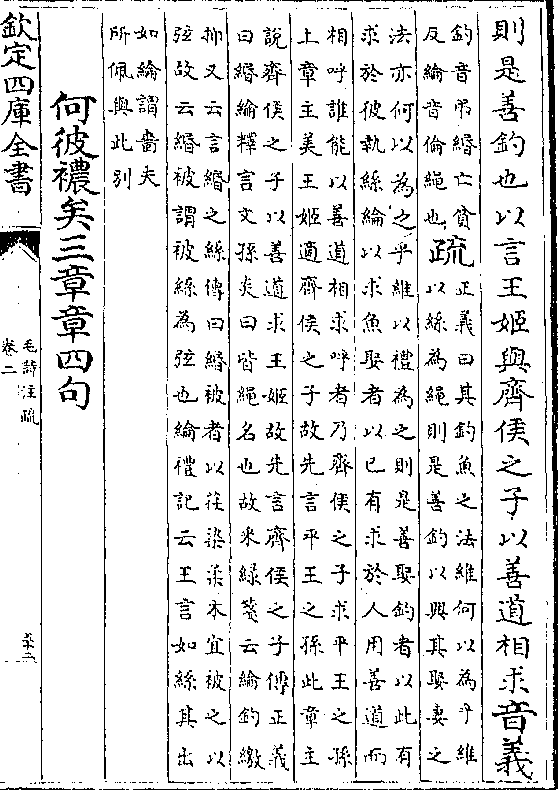 則是善釣也以言王姬與齊侯之子以善道相求音義
釣音弔緡亡貧
反綸音倫繩也
疏
正義曰其釣魚之法維何以為乎維
以絲為繩則是善釣以興其娶妻之
法亦何以為之乎維以禮為之則是善娶釣者以此有
求於彼執絲綸以求魚娶者以已有求於人用善道而
相呼誰能以善道相求呼者乃齊侯之子求平王之孫
上章主美王姬適齊侯之子故先言平王之孫此章主
說齊侯之子以善道求王姬故先言齊侯之子傳正義
曰緡綸釋言文孫炎曰皆繩名也故采綠箋云綸釣繳
抑又云言緡之絲傳曰緡被者以荏染柔木宜被之以
弦故云緡被謂被絲為弦也綸禮記云王言如絲其出
如綸謂嗇夫
所佩與此別
何彼襛矣三章章四句
欽定四庫全書
毛詩注疏
卷二